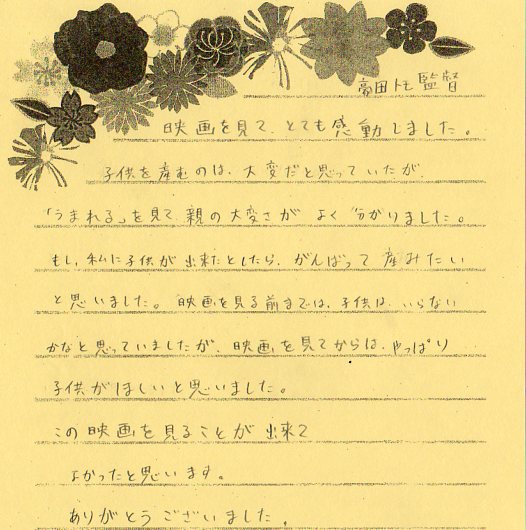 豪田トモ監督
映画を見て、とても感動しました。
子供を産むのは、大変だと思っていたが、
「うまれる」を見て、親の大変さが よく分かりました。
もし、私に子供が出来たとしたら、がんばって産みたい
と思いました。映画を見る前までは、子供は、いらない
かなと思っていましたが、映画を見てからは、やっぱり
子供がほしいと思いました。
この映画を見ることが出来て
よかったと思います。
ありがとうございました。